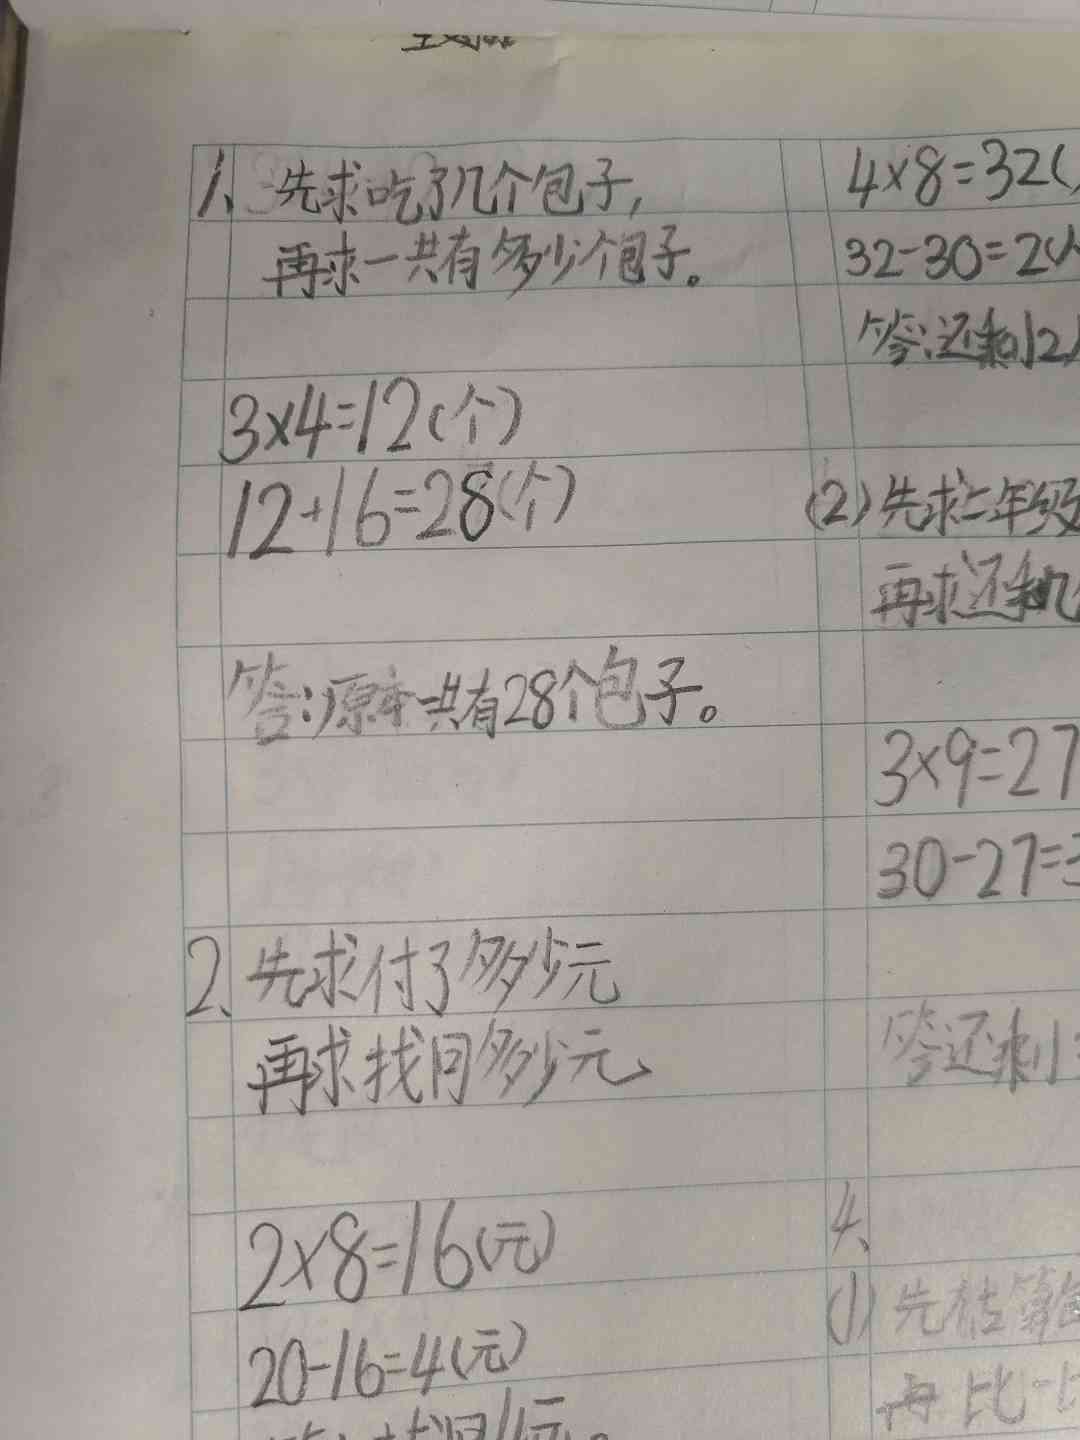 1、先求吃了几个包子,
再求一共有多少个包子。
3×4=12(个)
12+16=28(个)
答:原来一共有28个包子。
2、先求付了多少元
再求找回多少元
2×8=16(元)
20-16=4(元)
4×8=32(
32-30=2(
答:还剩2
(2)先求二年级
再求还剩几
3×9=27
30-27=3
答还剩
4、
(1)先估算
再比一比